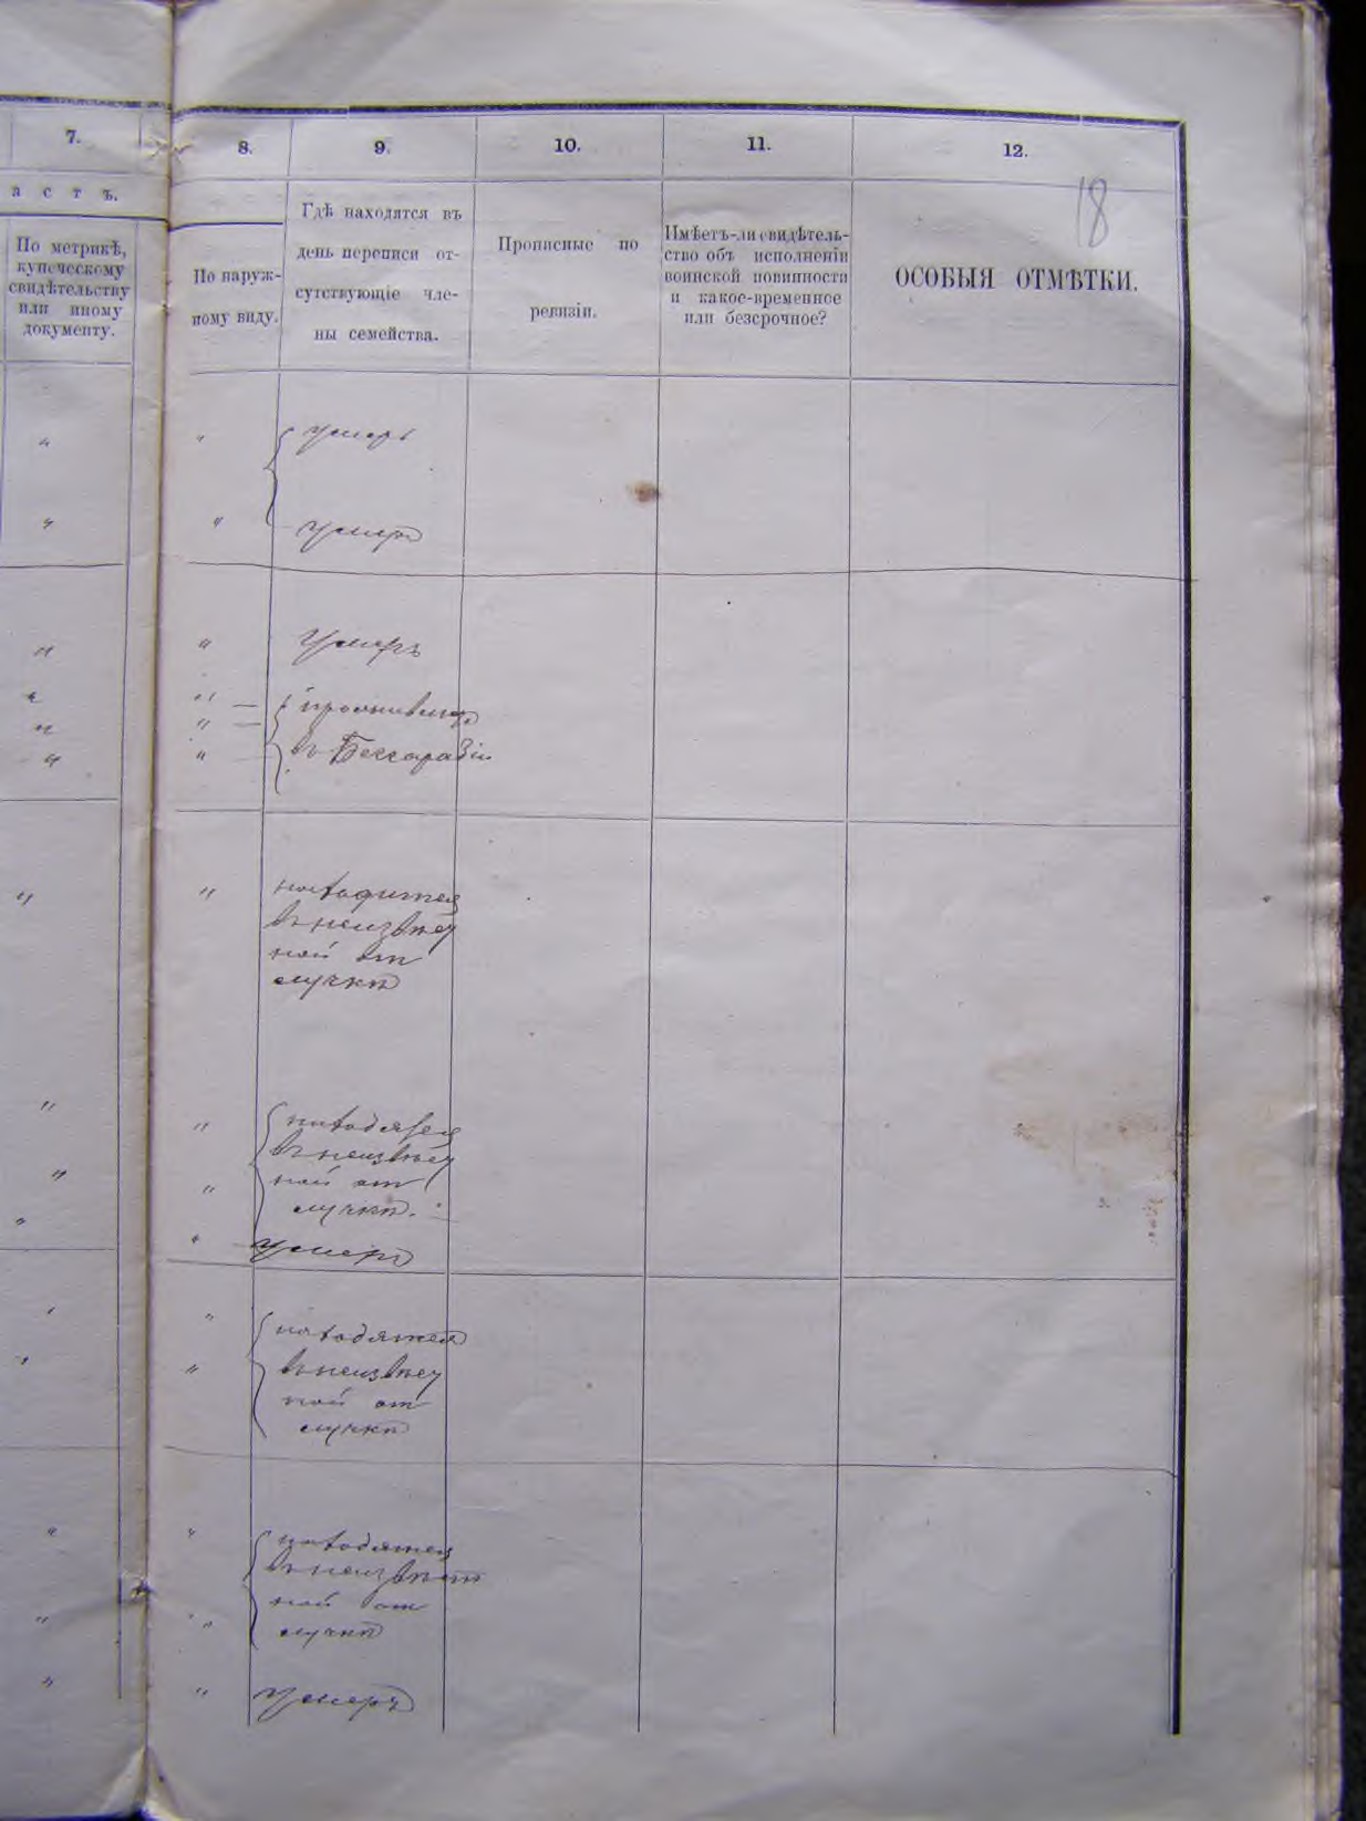 7.
8.
9.
10.
11.
12.
18
а с т ъ.
По метрикѣ,
купеческому
свидѣтельству
или иному
документу.
По наруж-
ному виду.
Гдѣ находятся въ
день переписи от-
сутствующіе чле-
ны семейства.
Прописные по
ревизіи.
Имѣетъ-ли свидѣтель-
ство объ исполненіи
воинской повинности
и какое-временное
или безсрочное?
ОСОБЫЯ ОТМѢТКИ.
" " умеръ
" " умеръ
" " Умеръ
" " проживаютъ
" "
" " въ Бессарабіи
" " находится
въ неизвѣст
ной от
лучкѣ
" " находятся
въ неизвѣст
" " ной от
лучкѣ.
" " умеръ
" " находятся
" " въ неизвѣст
ной от
лучкѣ
" " находятся
въ неизвѣст
" " ной от
лучкѣ
" " умеръ